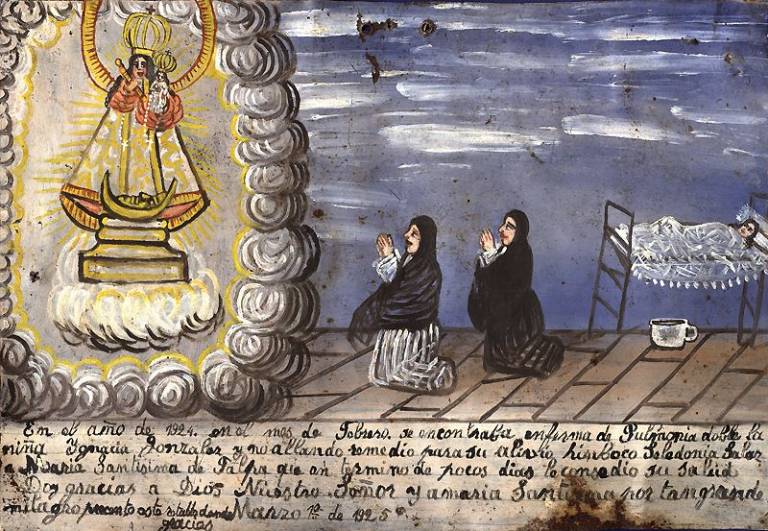 En el año de 1924. en el mes de Febrero. se encontraba enferma de Pulmonia doble la
niña Ygnacia Gonzalez y no allando remedio para su alivio hinboco Seledonia Salaz
a Maria Santisima de Talpa que en termino de pocos dias le consedio su salud
Doy gracias a Dios Nuestro Señor y a maria Santisima por tan grande
milagro precento este retablo dando Marzo 1º de 1925
gracias